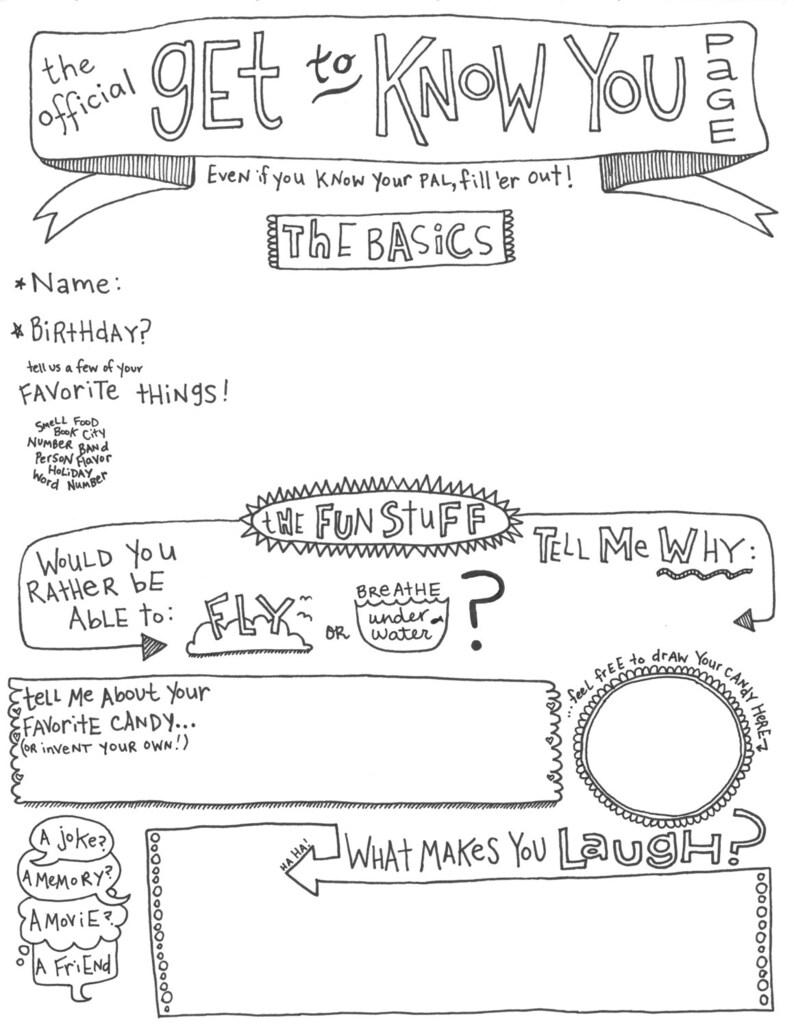 the official GET to KNOW YOU PAGE
EVEN if you KNOW Your PAL, fill 'er out!
THE BASICS
* Name:
* BIRTHDAY?
tell us a few of your
FAVORITE THINGS!
SMELL FOOD
BOOK CITY
NUMBER BAND
PERSON FLAVOR
HOLIDAY
WORD NUMBER
THE FUN STUFF
WOULD YOU
RATHER BE
ABLE to:
FLY
OR
BREATHE
under
water
?
TELL Me WHY:
tell Me About Your
FAVORITE CANDY...
(OR INVENT YOUR OWN!)
...feel frEE to drAW Your CANDY HERE
A joke?
A MEMORY?
A MOVIE?
A FRIEND
HA HA!
WHAT MAKES YOU LAUGH?